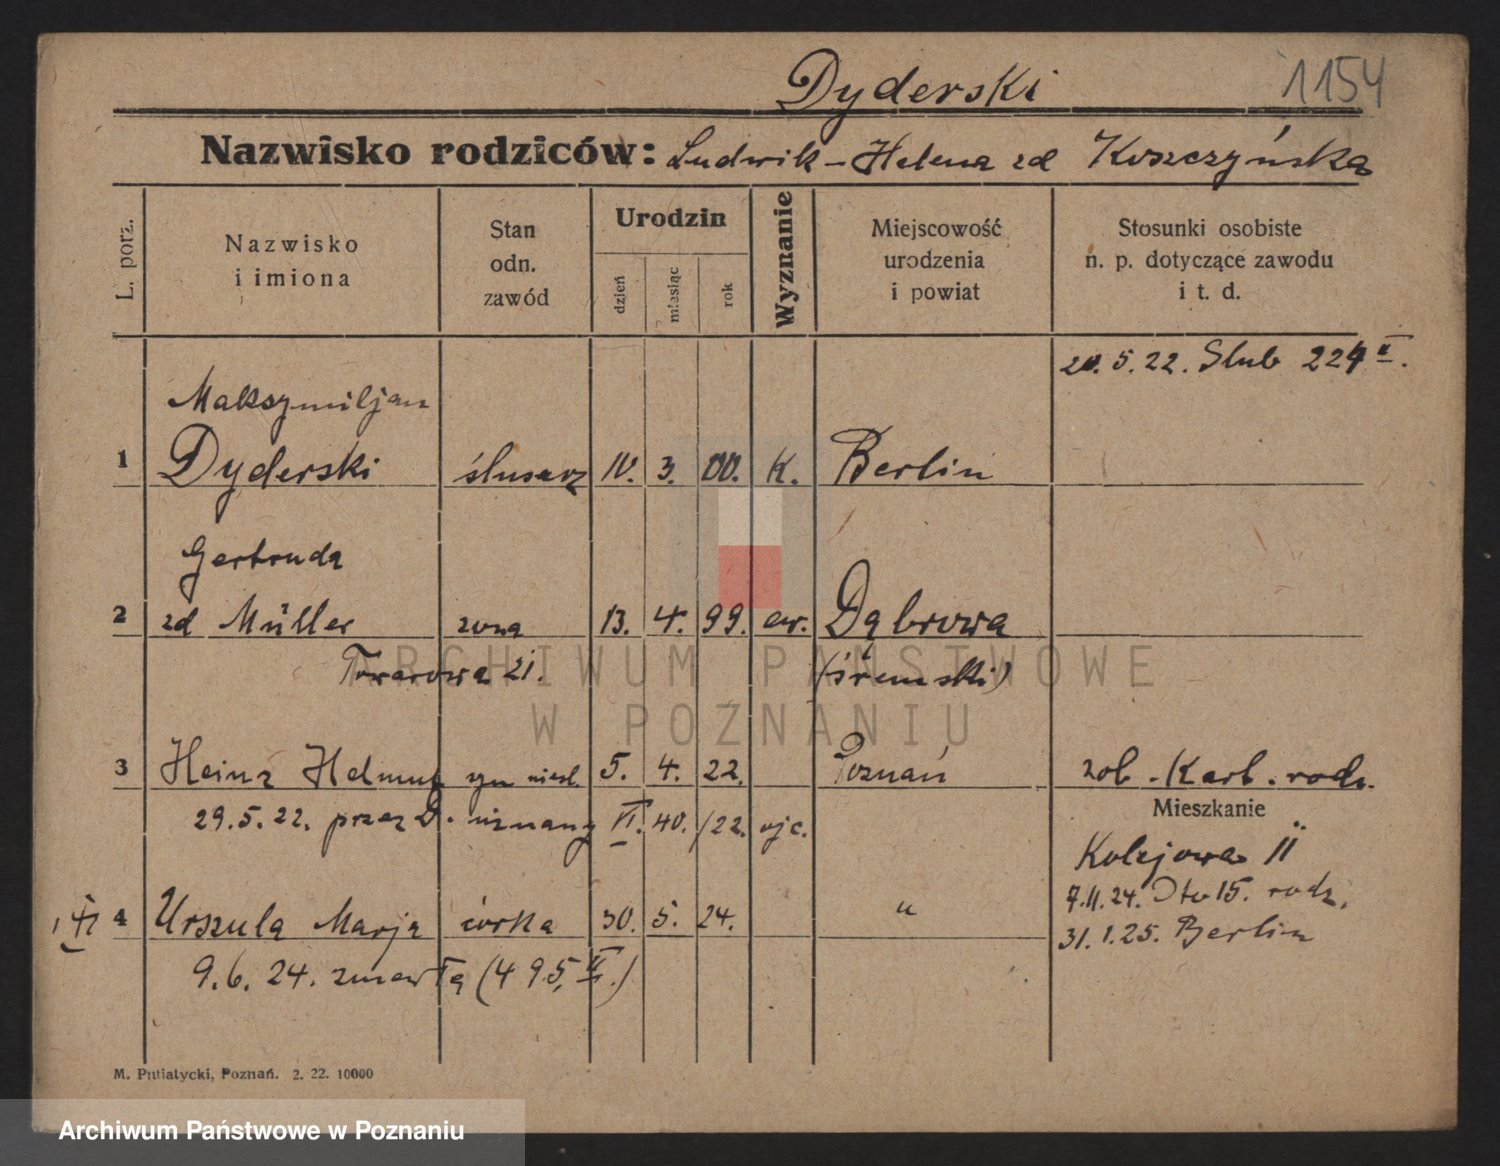 Dyderski 1154
Nazwisko rodziców: Ludwik - Helena zd Koszczyńska
L. porz.
Nazwisko
i imiona
Stan
odn.
zawód
Urodzin
dzień
miesiąc
rok
Wyznanie
Miejscowość
urodzenia
i powiat
Stosunki osobiste
n. p. dotyczące zawodu
i t. d.
20. 5. 22. Slub 224 II.
Maksymiljan
1 Dyderski ślusarz IV. 3. 00. K. Berlin
Gertruda
2 zd Müller zona 13. 4. 99. ew. Dąbrowa
Towarowa 21. (śremski)
3 Heinz Helmut syn niesl. 5. 4. 22. Poznań zob. Kart. rodz.
29. 5. 22. przez D. uznany VI. 40. /22. ojc.
Mieszkanie
Kolejowa 11
7. 11. 24. 15. rodz.
4 Urszula Marja córka 30. 5. 24. "
31. 1. 25. Berlin
9. 6. 24. zmarła (495, II.)
M. Putiatycki, Poznań. 2. 22. 10000
ARCHIWUM PAŃSTWOWE
W POZNANIU
Archiwum Państwowe w Poznaniu